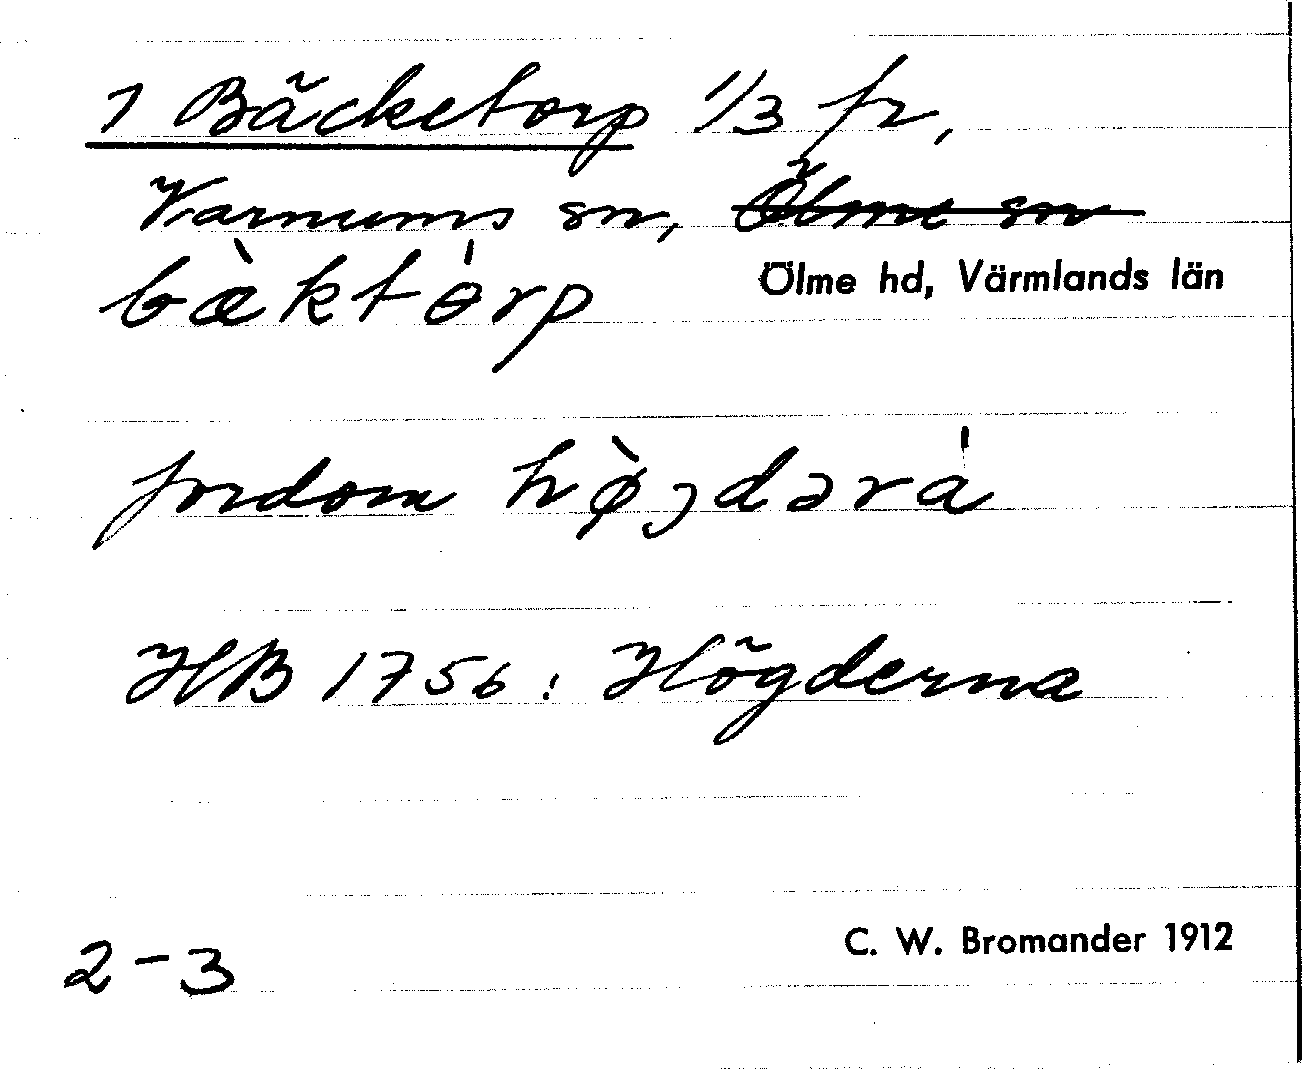 1 Bäcketorp 1/3 fr,
Varnums sn, Ölme sn
bæ̀ktɵ́rp
Ölme hd, Värmlands län
fordom hø̀jdərá
HB 1756: Högderna
2-3
C. W. Bromander 1912